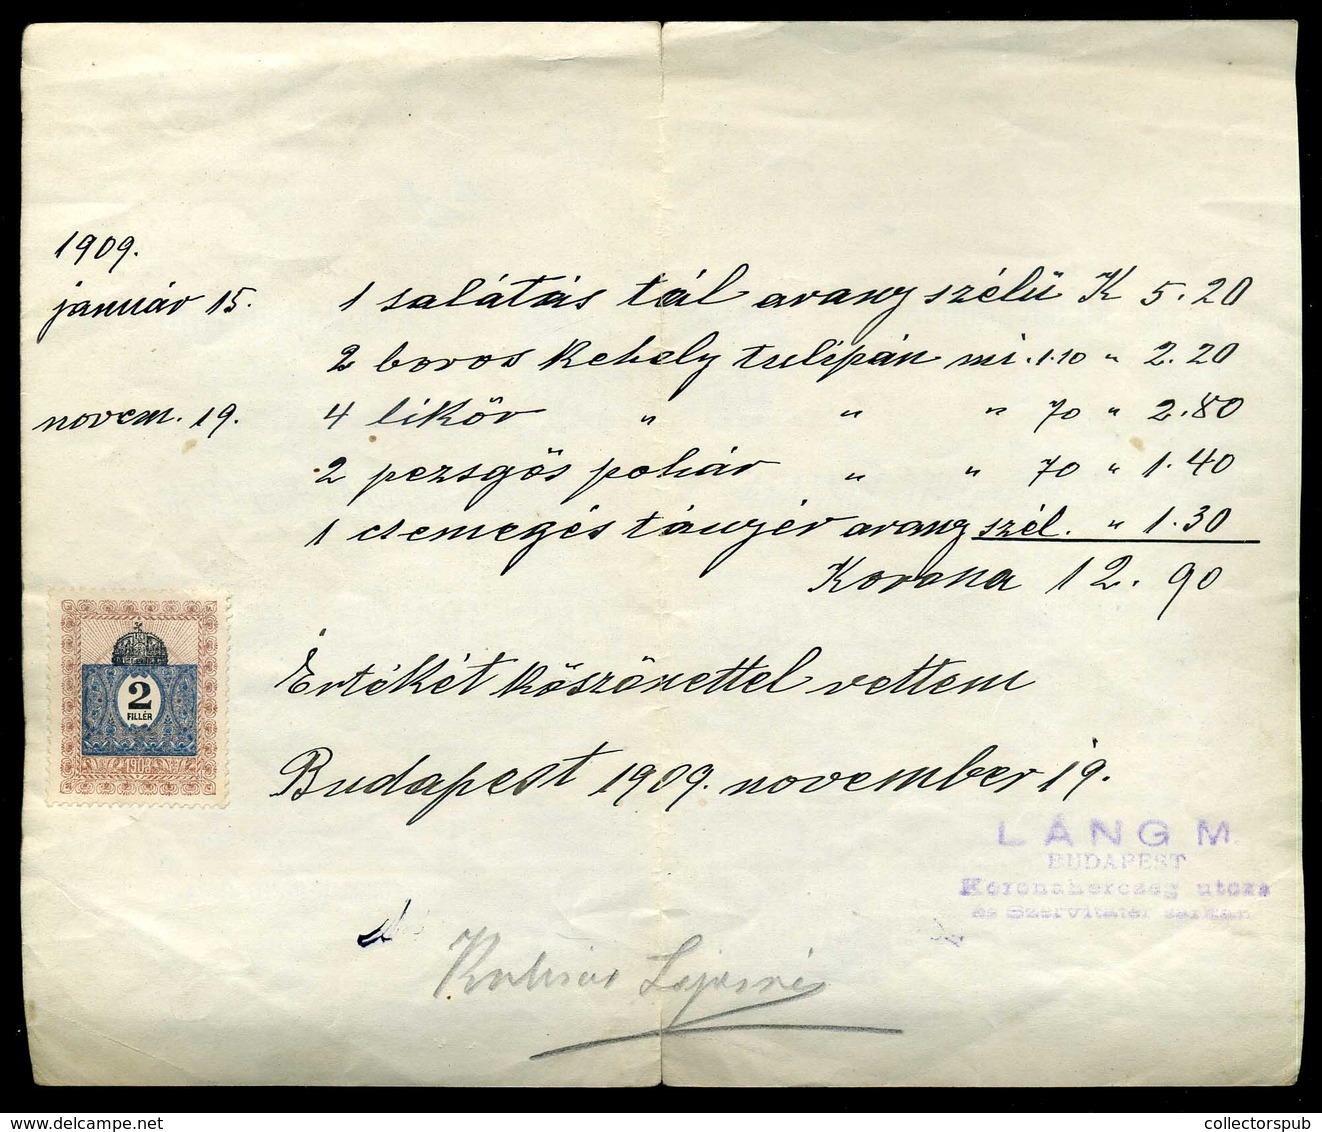 1909.
január 15. 1 salátás tál arany szélü K 5.20
2 boros kehely tulipán mi. 1.10 " 2.20
novem. 19. 4 likör " " " 70 " 2.80
2 pezsgős pohár " " 70 " 1.40
1 csemegés tányér arany szél. " 1.30
Korona 12.90
2
FILLÉR
1903
Értékét köszönettel vettem
Budapest 1909. november 19.
LÁNG M.
BUDAPEST
Koronaherczeg utcza
és Szervita-tér sarkán
Lajosné
collectorspub.com